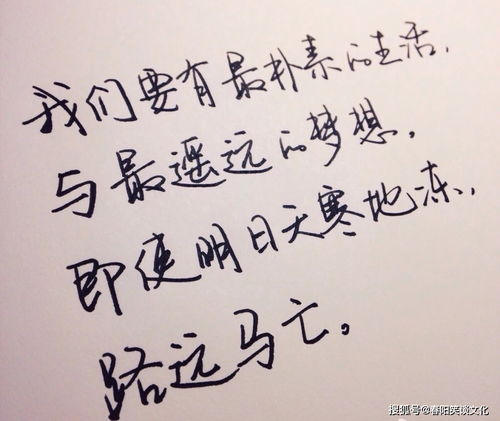 我们要有最朴素的生活,
与最遥远的梦想,
即使明日天寒地冻,
路远马亡。
搜狐号@春阳笑谈文化